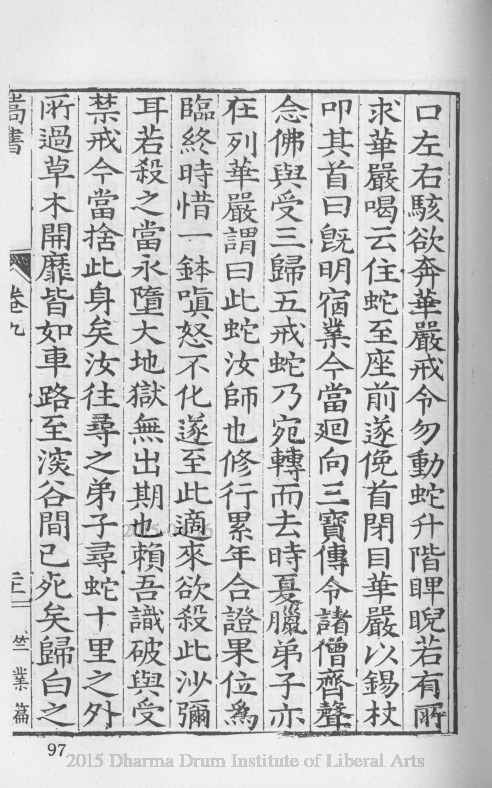 口左右駭欲奔華嚴戒令勿動蛇升階睥睨若有所
求華嚴喝云住蛇至座前遂俛首閉目華嚴以錫杖
叩其首曰既明宿業今當廻向三寶傳令諸僧齊聲
念佛與受三歸五戒蛇乃宛轉而去時夏臘弟子亦
在列華嚴謂曰此蛇汝師也修行累年合證果位爲
臨終時惜一鉢嗔怒不化遂至此適來欲殺此沙彌
耳若殺之當永墮大地獄無出期也賴吾識破與受
禁戒今當捨此身矣汝往尋之弟子尋蛇十里之外
所過草木開靡皆如車路至渓谷間已死矣歸白之
卷九
竺業篇
97
2015 Dharma Drum Institute of Liberal Arts